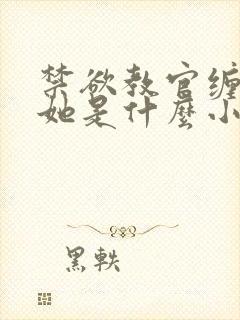 禁欲教官缠
她是什麼小
黑軼